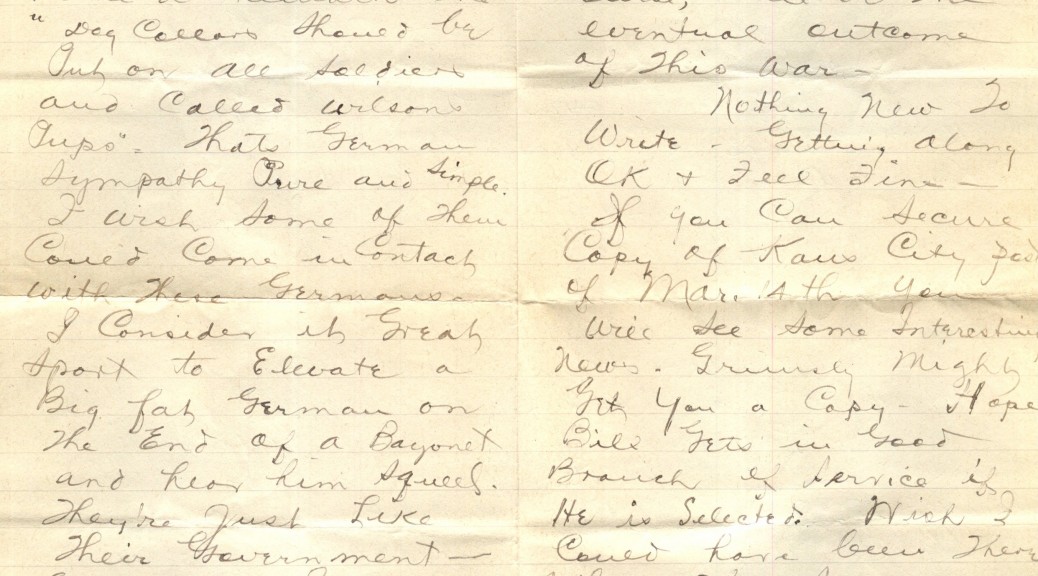 " Dog Collars Should be
Put on all soldiers
and Called Wilsons
Pups". Thats German
Sympathy Pure and Simple.
I wish some of Them
Could Come in Contact
with These Germans.
I Consider it Great
Sport to Elevate a
Big fat German on
The End of a Bayonet
and hear him squeel.
They're Just Like
Their Government —
eventual outcome
of This War —
Nothing New To
Write - Getting along
OK + Feel Fine —
If you Can Secure
Copy of Kans City Post
of Mar. 14th You
Will See Some Interesting
News. Grimsly Might
Get You a Copy - Hope
Bill Gets in Good
Branch of Service if
He is Selected. Wish I
Could have been There